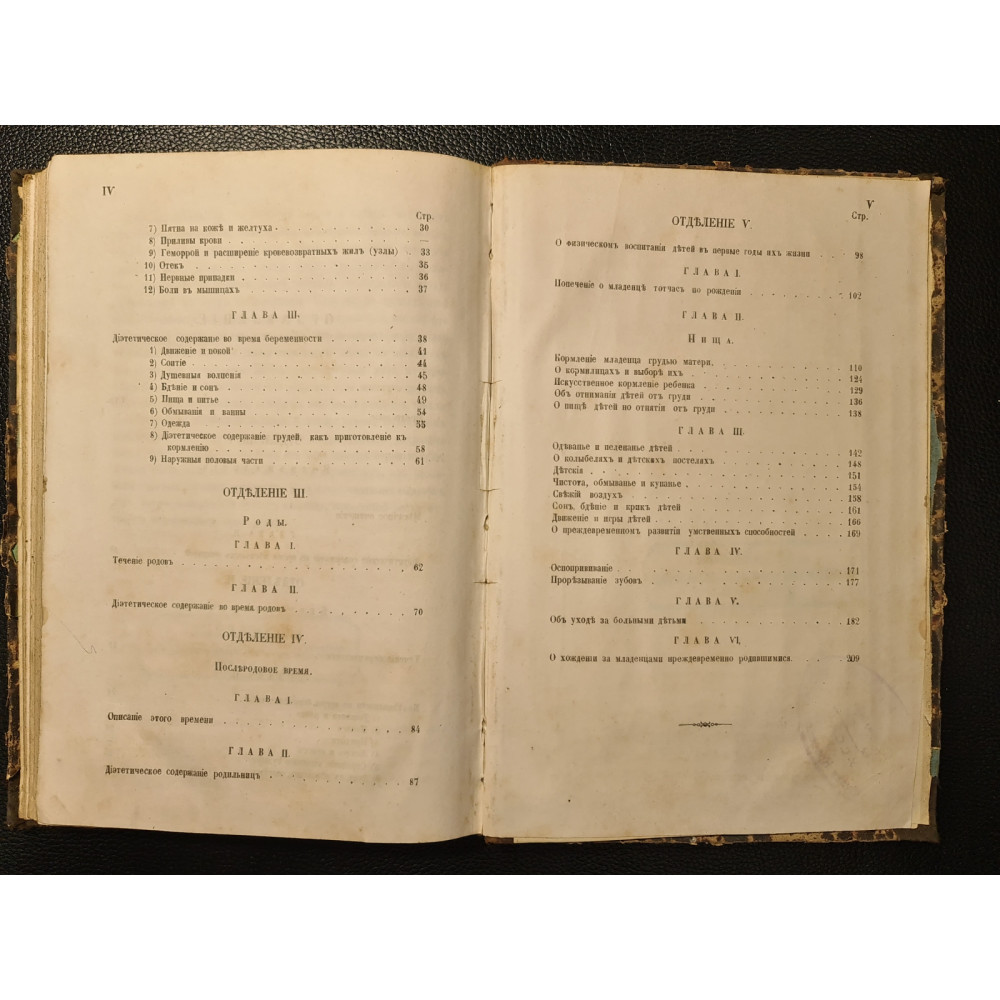 IV
Стр.
7) Пятна на кожѣ и желтуха . . . . . . . . . . 30
8) Приливы крови . . . . . . . . . . —
9) Геморрой и расширеніе кровевозвратныхъ жилъ (узлы) . . 33
10) Отекъ . . . . . . . . . . 35
11) Нервные припадки . . . . . . . . . . 36
12) Боли въ мышицахъ . . . . . . . . . . 37
ГЛАВА III.
Діэтетическое содержаніе во время беременности . . . . . . 38
1) Движеніе и покой . . . . . . . . . . 41
2) Соитіе . . . . . . . . . . 44
3) Душевныя волненія . . . . . . . . . . 45
4) Бдѣніе и сонъ . . . . . . . . . . 48
5) Пища и питье . . . . . . . . . . 49
6) Обмыванія и ванны . . . . . . . . . . 54
7) Одежда . . . . . . . . . . 55
8) Діэтетическое содержаніе грудей, какъ приготовленіе къ
кормленію . . . . . . . . . . 58
9) Наружныя половыя части . . . . . . . . . . 61
ОТДѢЛЕНІЕ III.
Роды.
ГЛАВА I.
Теченіе родовъ . . . . . . . . . . 62
ГЛАВА II.
Діэтетическое содержаніе во время родовъ . . . . . . . . 70
ОТДѢЛЕНІЕ IV.
Послѣродовое время.
ГЛАВА I.
Описаніе этого времени . . . . . . . . . . 84
ГЛАВА II.
Діэтетическое содержаніе родильницъ . . . . . . . . . . 87
V
Стр.
ОТДѢЛЕНІЕ V.
О физическомъ воспитаніи дѣтей въ первые годы ихъ жизни . . . 98
ГЛАВА I.
Попеченіе о младенцѣ тотчасъ по рожденіи . . . . . . . . 102
ГЛАВА II.
Пища.
Кормленіе младенца грудью матери. . . . . . . . . . 110
О кормилицахъ и выборѣ ихъ . . . . . . . . . . 124
Искусственное кормленіе ребенка . . . . . . . . . . 129
Объ отниманіи дѣтей отъ груди . . . . . . . . . . 136
О пищѣ дѣтей по отнятіи отъ груди . . . . . . . . . . 138
ГЛАВА III.
Одѣванье и пеленанье дѣтей . . . . . . . . . . 142
О колыбеляхъ и дѣтскихъ постеляхъ . . . . . . . . . . 148
Дѣтскія . . . . . . . . . . 151
Чистота, обмыванье и купанье . . . . . . . . . . 154
Свѣжій воздухъ . . . . . . . . . . 158
Сонъ, бдѣніе и крикъ дѣтей . . . . . . . . . . 161
Движеніе и игры дѣтей . . . . . . . . . . 166
О преждевременномъ развитіи умственныхъ способностей . . . . 169
ГЛАВА IV.
Оспопрививаніе . . . . . . . . . . 171
Прорѣзываніе зубовъ . . . . . . . . . . 177
ГЛАВА V.
Объ уходѣ за больными дѣтьми . . . . . . . . . . 182
ГЛАВА VI.
О хожденіи за младенцами преждевременно родившимися. . . . . 209